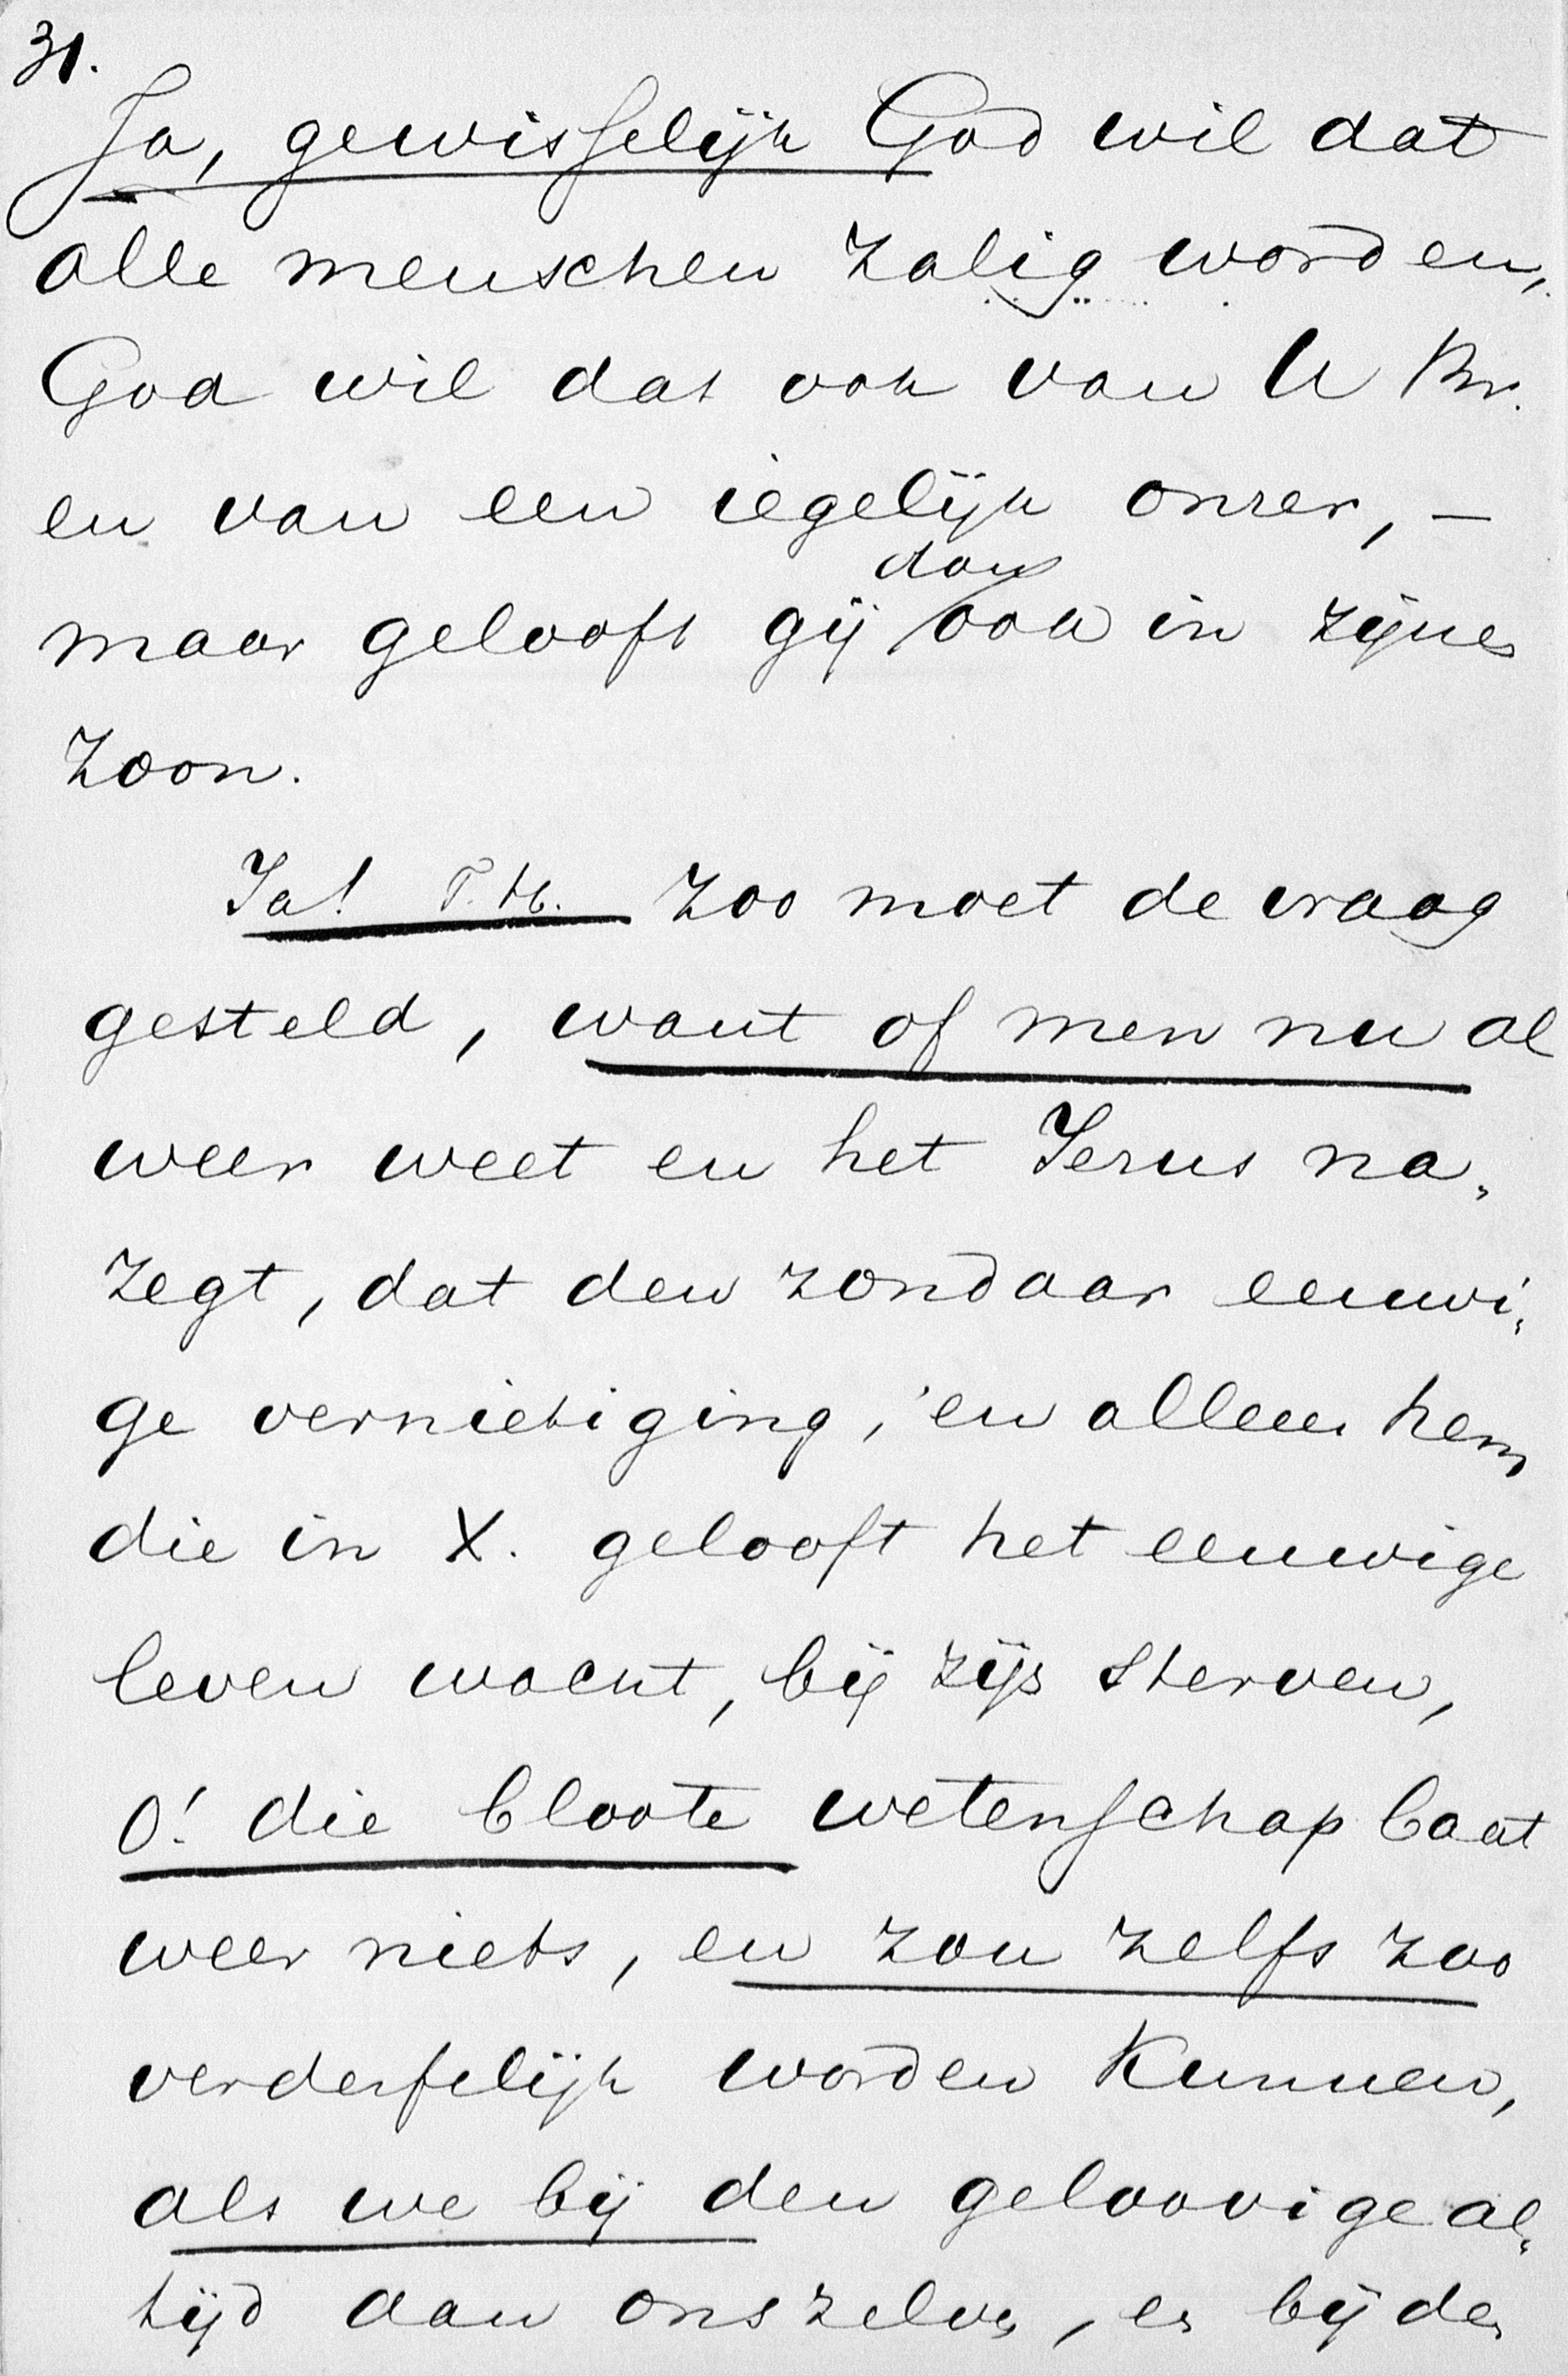 31.
Ja, gewisselijk God wil dat
alle menschen zalig worden,
God wil dat ook van U Br.
en van een iegelijk onzer, –
dan
maar gelooft gij ook in zijnen
zoon.
Ja! T. H. zoo moet de vraag
gesteld, want of men nu al
weer weet en het Jezus na„
zegt, dat den zondaar eeuwi„
ge vernietiging, en alleen hem
die in X. gelooft het eeuwige
leven wacht, bij zijn sterven,
O! die bloote wetenschap baat
weer niets, en zou zelfs zoo
verderfelijk worden kunnen,
als we bij den geloovige al„
tijd aan onszelven, en bij den